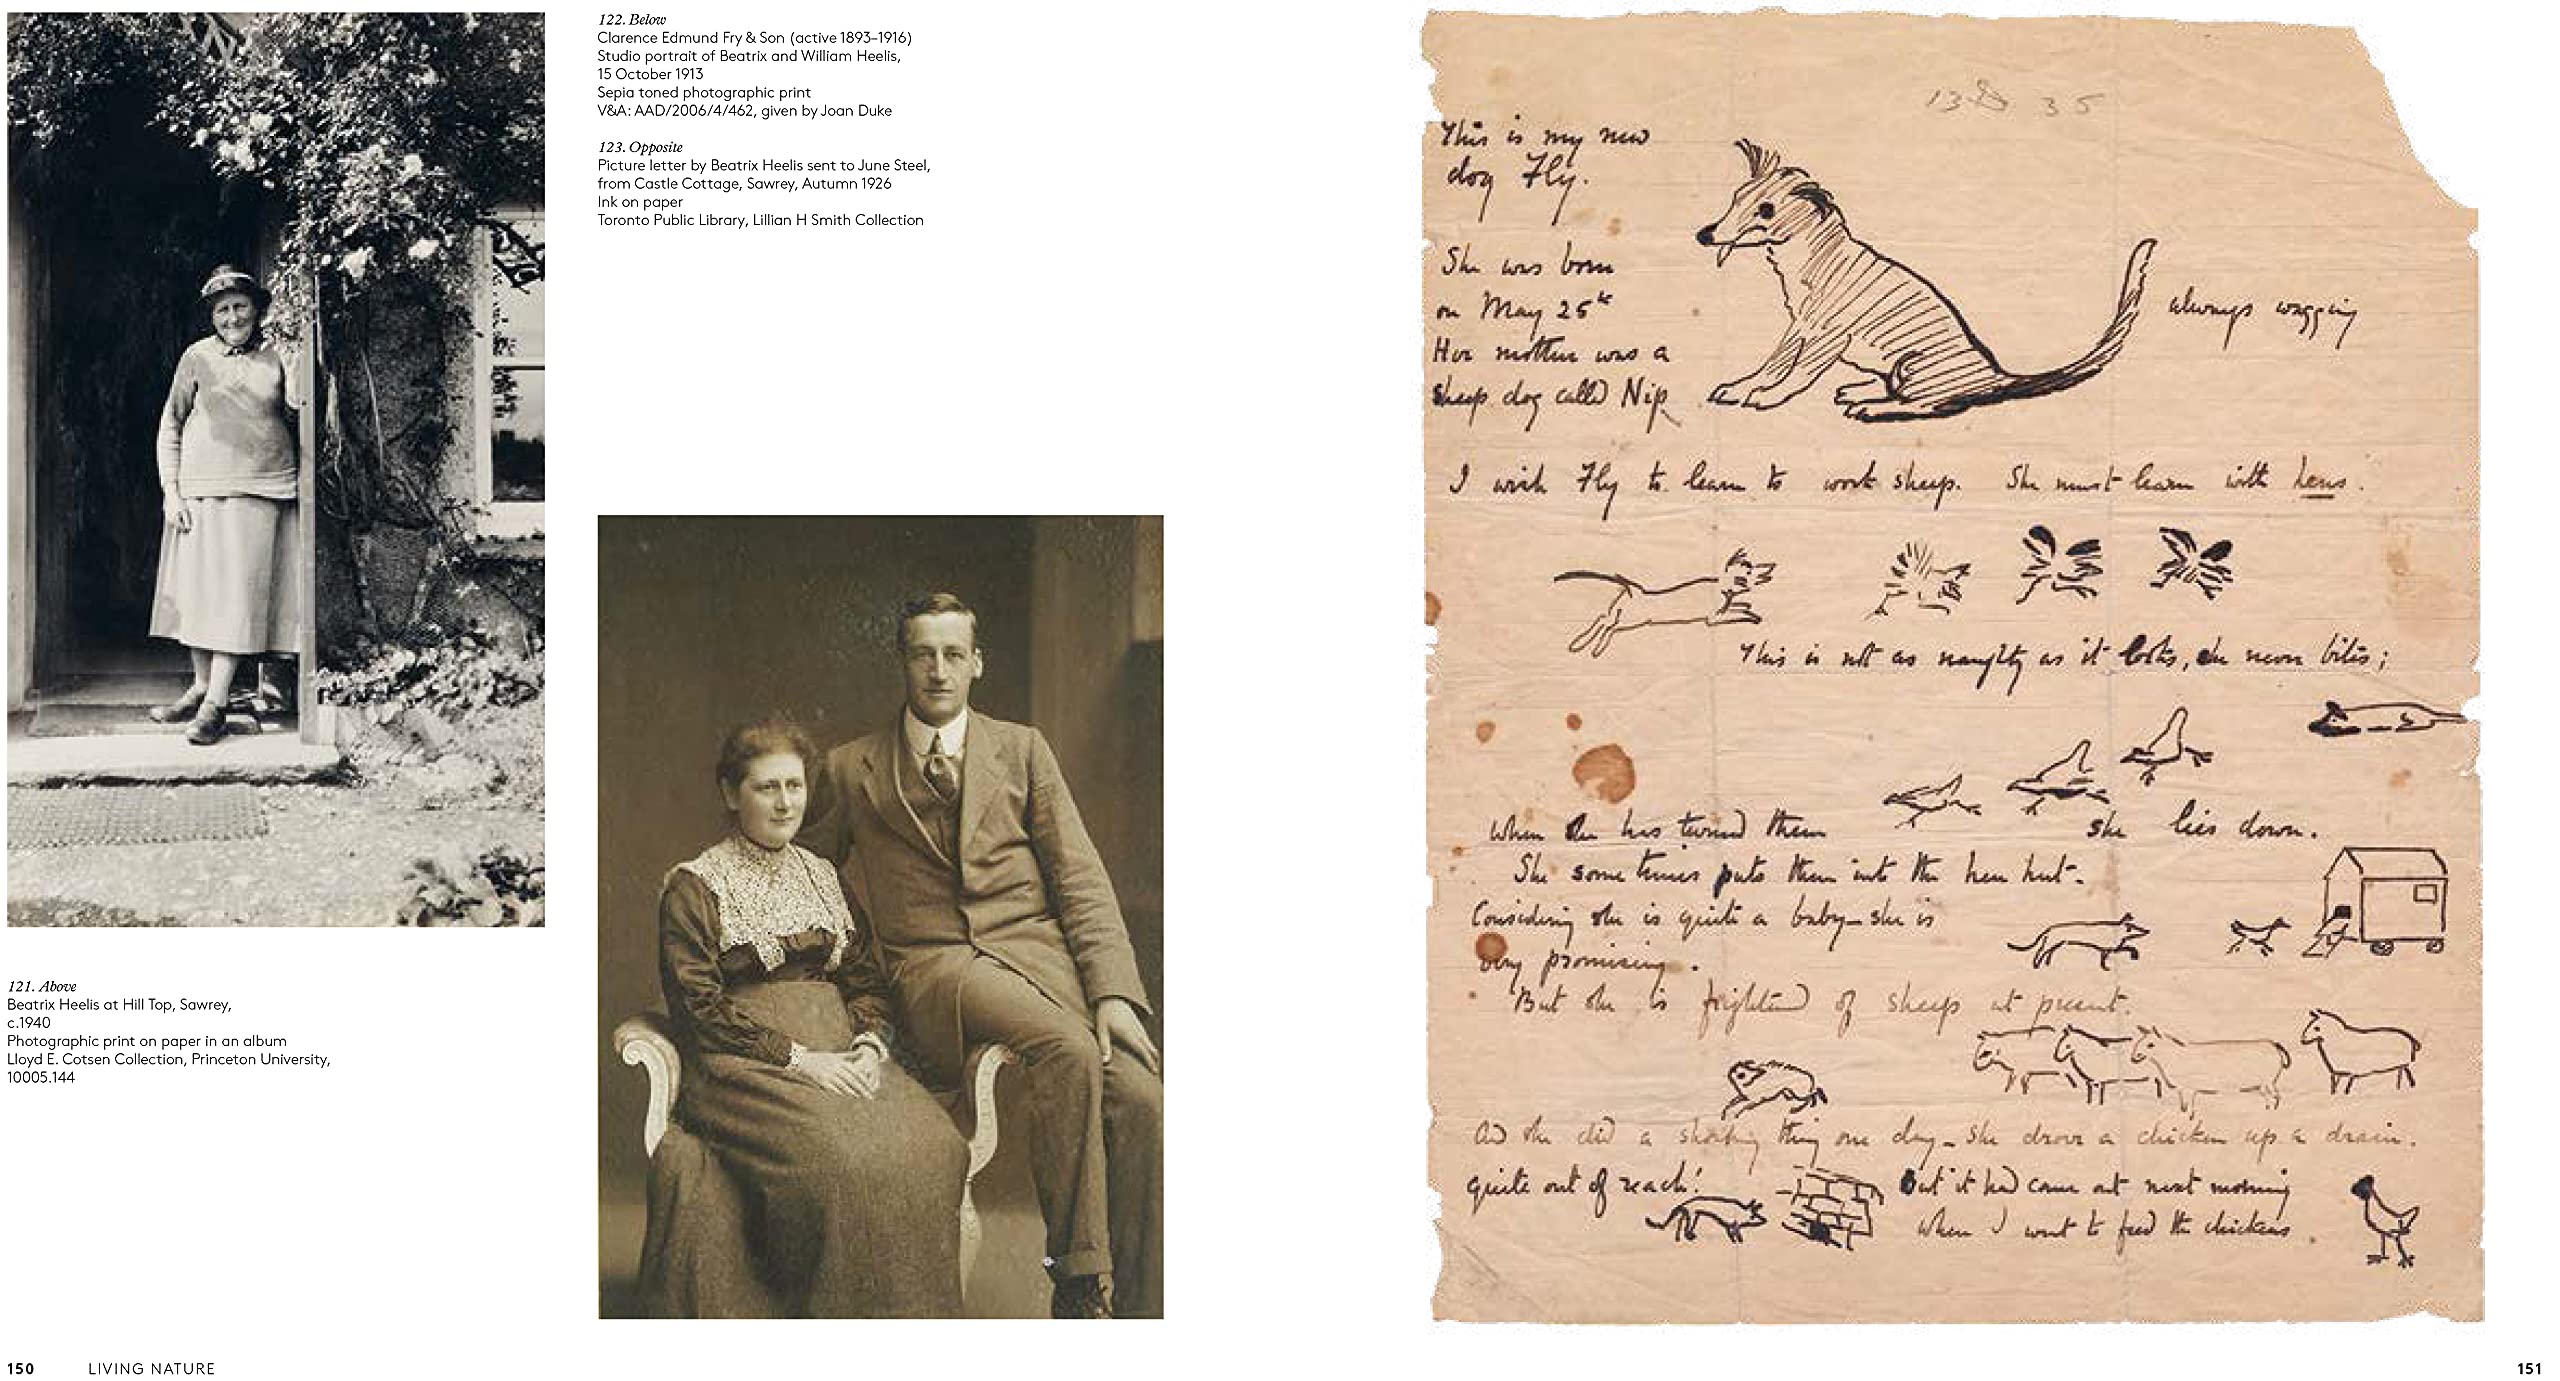 122. Below
Clarence Edmund Fry & Son (active 1893–1916)
Studio portrait of Beatrix and William Heelis,
15 October 1913
Sepia toned photographic print
V&A: AAD/2006/4/462, given by Joan Duke
123. Opposite
Picture letter by Beatrix Heelis sent to June Steel,
from Castle Cottage, Sawrey, Autumn 1926
Ink on paper
Toronto Public Library, Lillian H Smith Collection
121. Above
Beatrix Heelis at Hill Top, Sawrey,
c.1940
Photographic print on paper in an album
Lloyd E. Cotsen Collection, Princeton University,
10005.144
150 LIVING NATURE
35
This is my new
dog Fly.
She was born
on May 25th
always wagging
Her mother was a
sheep dog called Nip
I wish Fly to learn to work sheep. She must learn with hens.
This is not as naughty as it looks, she never bites;
When she has turned them she lies down.
She sometimes puts them into the hen hut.
Considering she is quite a baby – she is
very promising.
But she is frightened of sheep at present.
And she did a shocking thing one day – She drove a chicken up a drain.
quite out of reach! But it had come out next morning
when I went to feed the chickens.
151